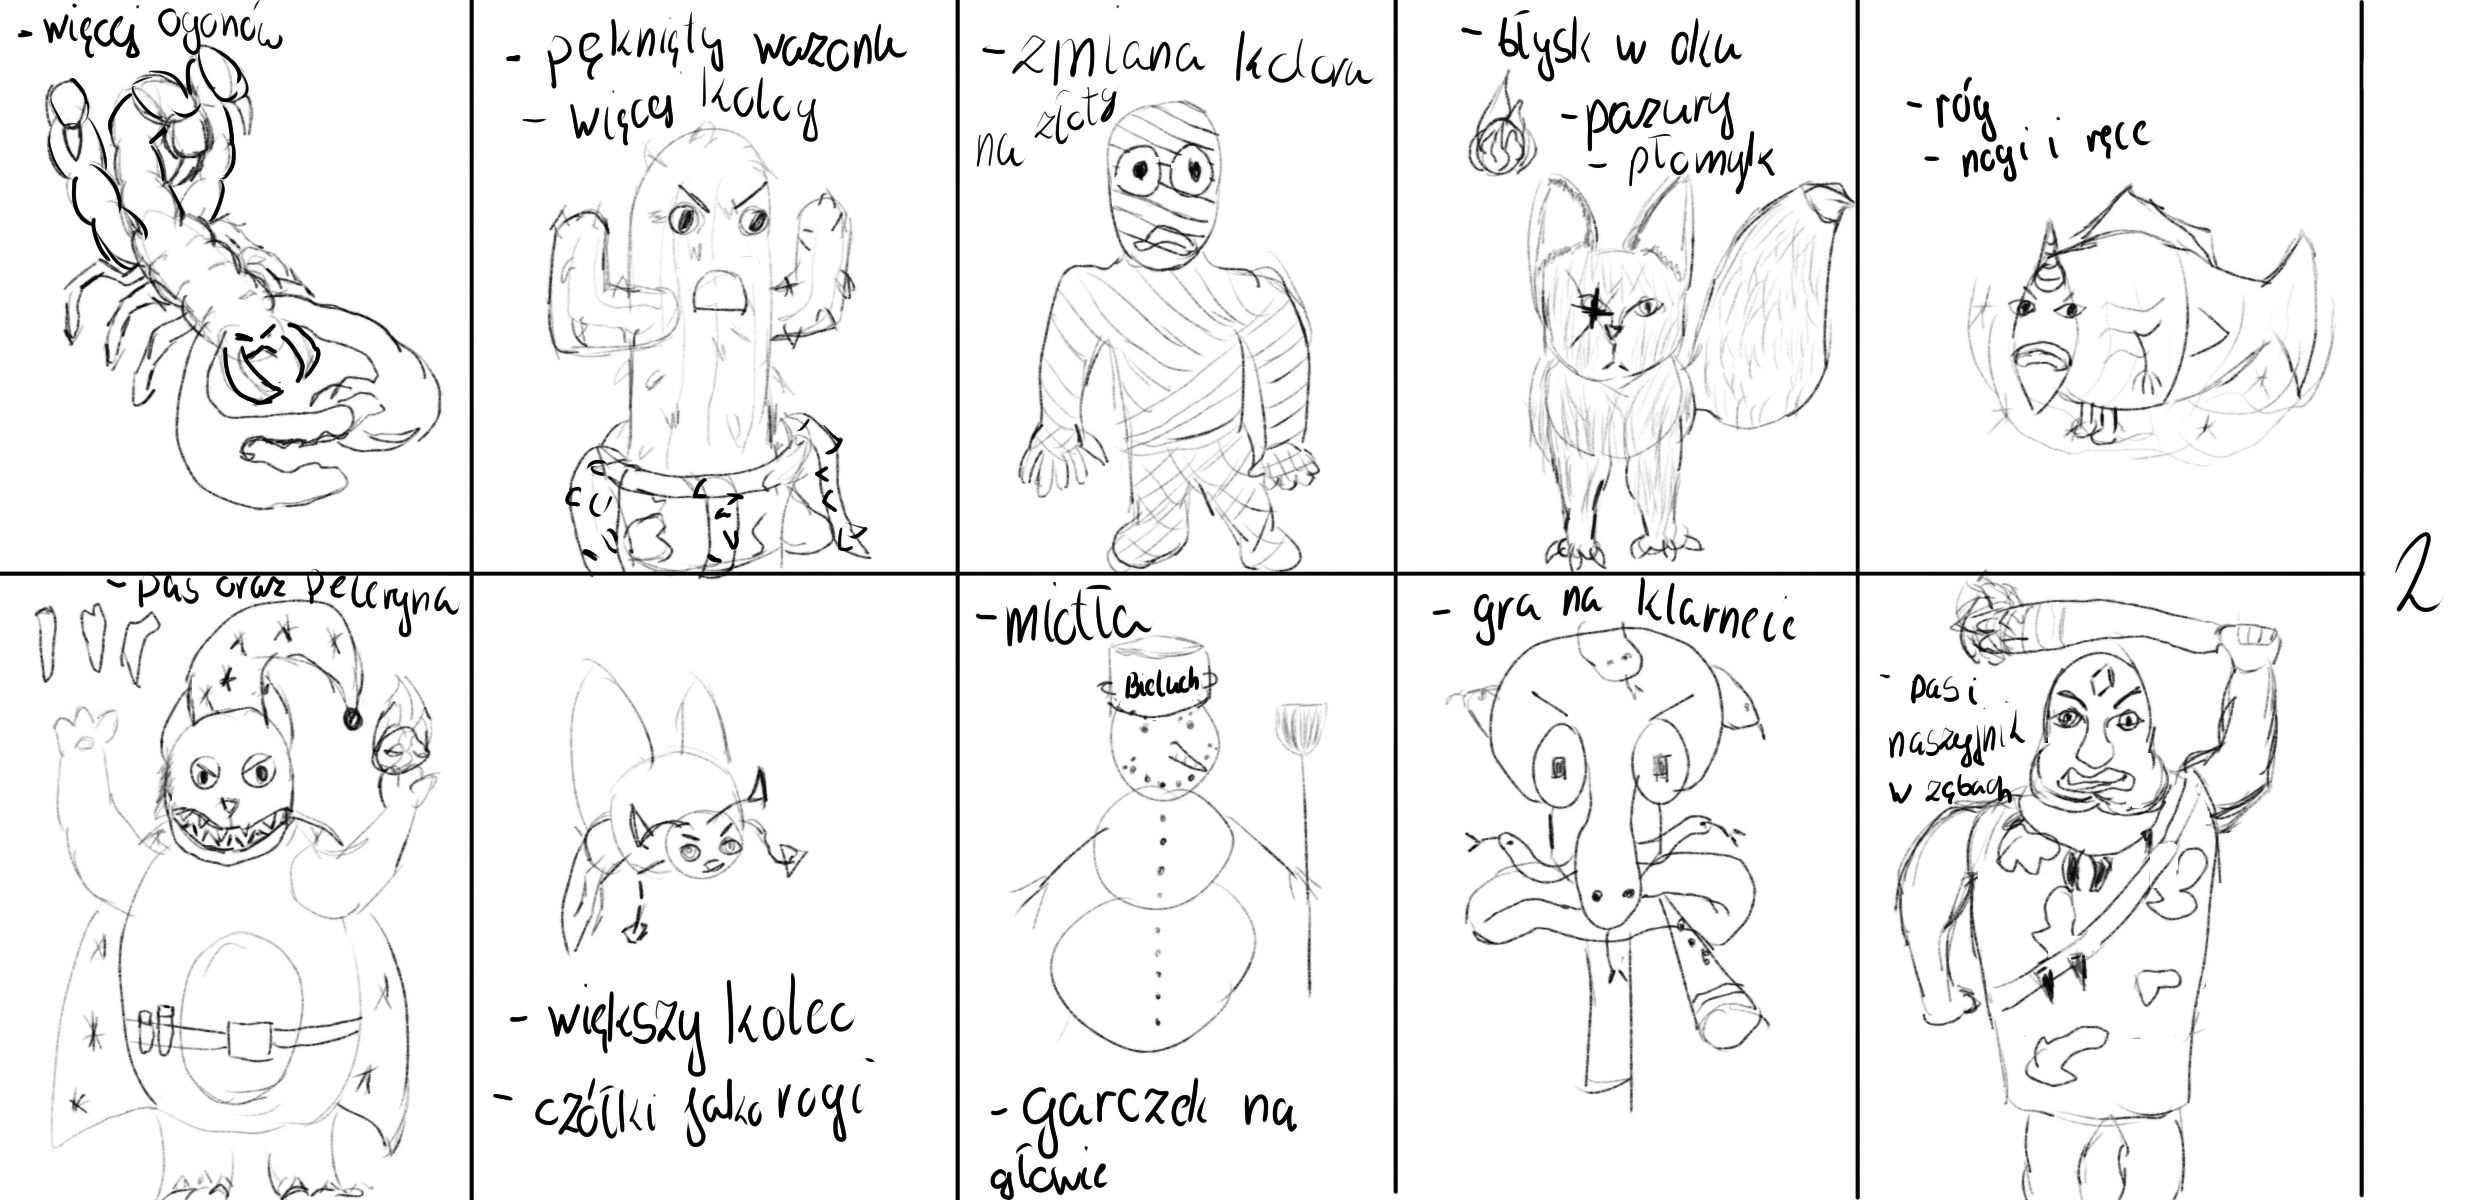 - więcej ogonów
- pęknięty wazonu
- więcej kolcy
- zmiana koloru
na złoty
- błysk w oku
- pazury
- płomyk
- róg
- nogi i ręce
2
- pas oraz peleryna
- większy kolec
- czółki jako rogi
- miotła
Bieluch
- garczek na
głowie
- gra na klarnecie
- pas i
naszyjnik
w zębach